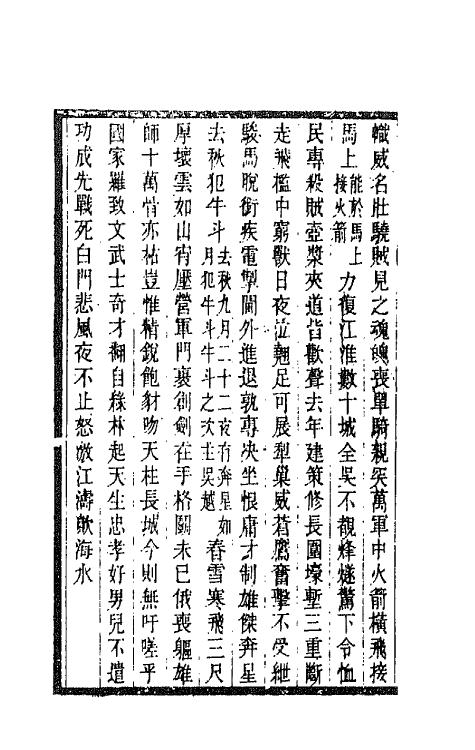 幟威名壯驍賊見之魂魄喪單騎親突萬軍中火箭橫飛接
馬上能於馬上接火箭力復江淮數十城全吳不覩烽燧驚下令恤
民專殺賊壺漿夾道皆歡聲去年建策修長圍壕塹三重斷
走飛檻中窮獸日夜泣翹足可展犁巢威蒼鷹奮擊不受紲
駿馬脫銜疾電掣閫外進退孰專決坐恨庸才制雄傑奔星
去秋犯牛斗去秋九月二十二夜有奔星如月犯牛斗牛斗之次主吳越春雪寒飛三尺
厚壞雲如山宵壓營軍門裹創劍在手格鬬未已俄喪軀雄
師十萬惜亦枯豈惟精銳飽豺吻天柱長城今則無吁嗟乎
國家難致文武士奇才翻自綠林起天生忠孝好男兒不遺
功成先戰死白門悲風夜不止怒激江濤歕海水